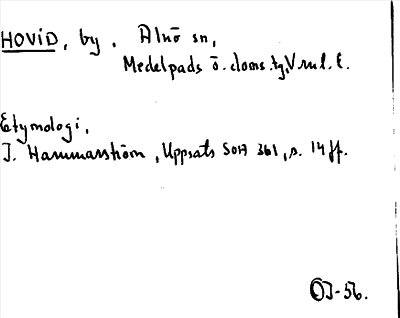 HOVID, by. Alnö sn,
Medelpads ö. doms.tg, V.nrl. l.
Etymologi,
I. Hammarström, Uppsats SOA 361, s. 14 ff.
OJ-56.